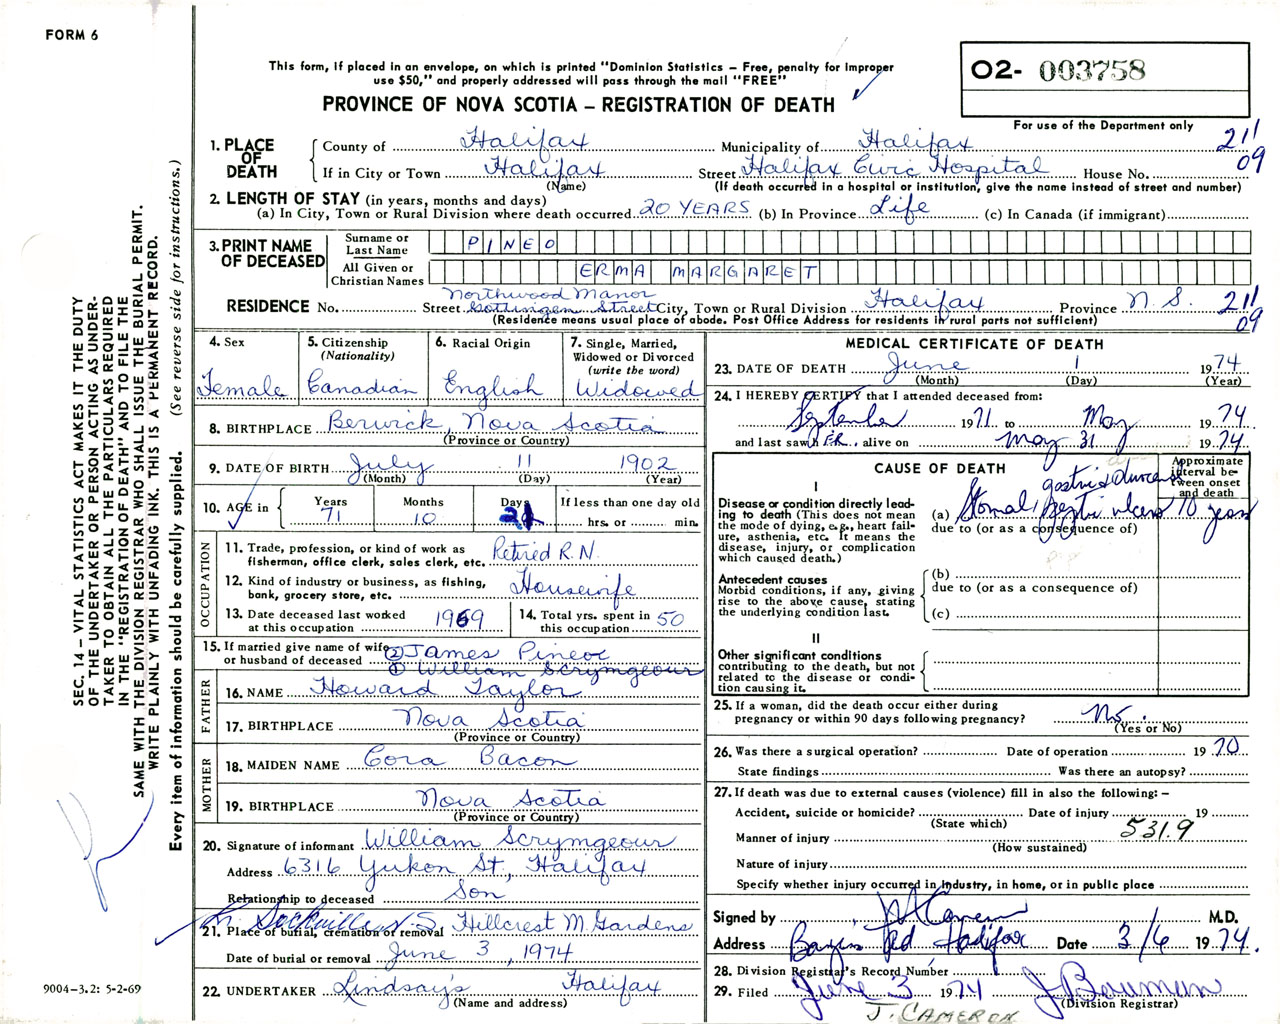 FORM 6
This form, if placed in an envelope, on which is printed "Dominion Statistics – Free, penalty for improper
use $50," and properly addressed will pass through the mail "FREE"
PROVINCE OF NOVA SCOTIA – REGISTRATION OF DEATH
O2- 003758
For use of the Department only
211
09
1. PLACE OF DEATH
County of Halifax Municipality of Halifax
If in City or Town Halifax Street Halifax Civic Hospital House No.
(Name) (If death occurred in a hospital or institution, give the name instead of street and number)
2. LENGTH OF STAY (in years, months and days)
(a) In City, Town or Rural Division where death occurred 20 YEARS (b) In Province Life (c) In Canada (if immigrant)
3. PRINT NAME OF DECEASED
Surname or Last Name PINEO
All Given or Christian Names ERMA MARGARET
Northwood Manor
RESIDENCE No. Street Gottingen Street City, Town or Rural Division Halifax Province N.S. 211
09
(Residence means usual place of abode. Post Office Address for residents in rural parts not sufficient)
4. Sex
Female
5. Citizenship
(Nationality)
Canadian
6. Racial Origin
English
7. Single, Married,
Widowed or Divorced
(write the word)
Widowed
8. BIRTHPLACE Berwick, Nova Scotia
(Province or Country)
9. DATE OF BIRTH July 11 1902
(Month) (Day) (Year)
10. AGE in
Years 71
Months 10
Days
If less than one day old
hrs. or min.
OCCUPATION
11. Trade, profession, or kind of work as
fisherman, office clerk, sales clerk, etc. Retired R.N.
12. Kind of industry or business, as fishing,
bank, grocery store, etc. Housewife
13. Date deceased last worked
at this occupation 1969
14. Total yrs. spent in
this occupation 50
15. If married give name of wife
or husband of deceased
② James Pineo
① William Scrymgeour
FATHER
16. NAME Howard Taylor
17. BIRTHPLACE Nova Scotia
(Province or Country)
MOTHER
18. MAIDEN NAME Cora Bacon
19. BIRTHPLACE Nova Scotia
(Province or Country)
20. Signature of informant William Scrymgeour
Address 6316 Yukon St., Halifax
Relationship to deceased Son
Sackville N.S.
21. Place of burial, cremation or removal Hillcrest M. Gardens
Date of burial or removal June 3, 1974
22. UNDERTAKER Lindsay's Halifax
(Name and address)
MEDICAL CERTIFICATE OF DEATH
23. DATE OF DEATH June 1 1974
(Month) (Day) (Year)
24. I HEREBY CERTIFY that I attended deceased from:
September 1971 to May 1974
and last saw h ER. alive on May 31 1974
CAUSE OF DEATH
Approximate
interval be-
tween onset
and death
I
Disease or condition directly lead-
ing to death (This does not
mean the mode of dying, e.g., heart fail-
ure, asthenia, etc. It means the
disease, injury, or complication
which caused death.)
(a) Stomal peptic ulcers 10 years
due to (or as a consequence of)
Antecedent causes
Morbid conditions, if any, giving
rise to the above cause, stating
the underlying condition last.
(b)
due to (or as a consequence of)
(c)
II
Other significant conditions
contributing to the death, but not
related to the disease or condi-
tion causing it.
25. If a woman, did the death occur either during
pregnancy or within 90 days following pregnancy? No.
(Yes or No)
26. Was there a surgical operation? Date of operation 1970
State findings Was there an autopsy?
27. If death was due to external causes (violence) fill in also the following: –
Accident, suicide or homicide? Date of injury 19
(State which)
531.9
Manner of injury
(How sustained)
Nature of injury
Specify whether injury occurred in industry, in home, or in public place
Signed by M.D.
Address Bayers Rd Halifax Date 3/6 1974.
28. Division Registrar's Record Number
29. Filed June 3 1974 J Bowman
(Division Registrar)
J. CAMERON
SEC. 14 – VITAL STATISTICS ACT MAKES IT THE DUTY
OF THE UNDERTAKER OR PERSON ACTING AS UNDER-
TAKER TO OBTAIN ALL THE PARTICULARS REQUIRED
IN THE "REGISTRATION OF DEATH" AND TO FILE THE
SAME WITH THE DIVISION REGISTRAR WHO SHALL ISSUE THE BURIAL PERMIT.
WRITE PLAINLY WITH UNFADING INK. THIS IS A PERMANENT RECORD.
Every item of information should be carefully supplied. (See reverse side for instructions.)
9004–3.2: 5-2-69